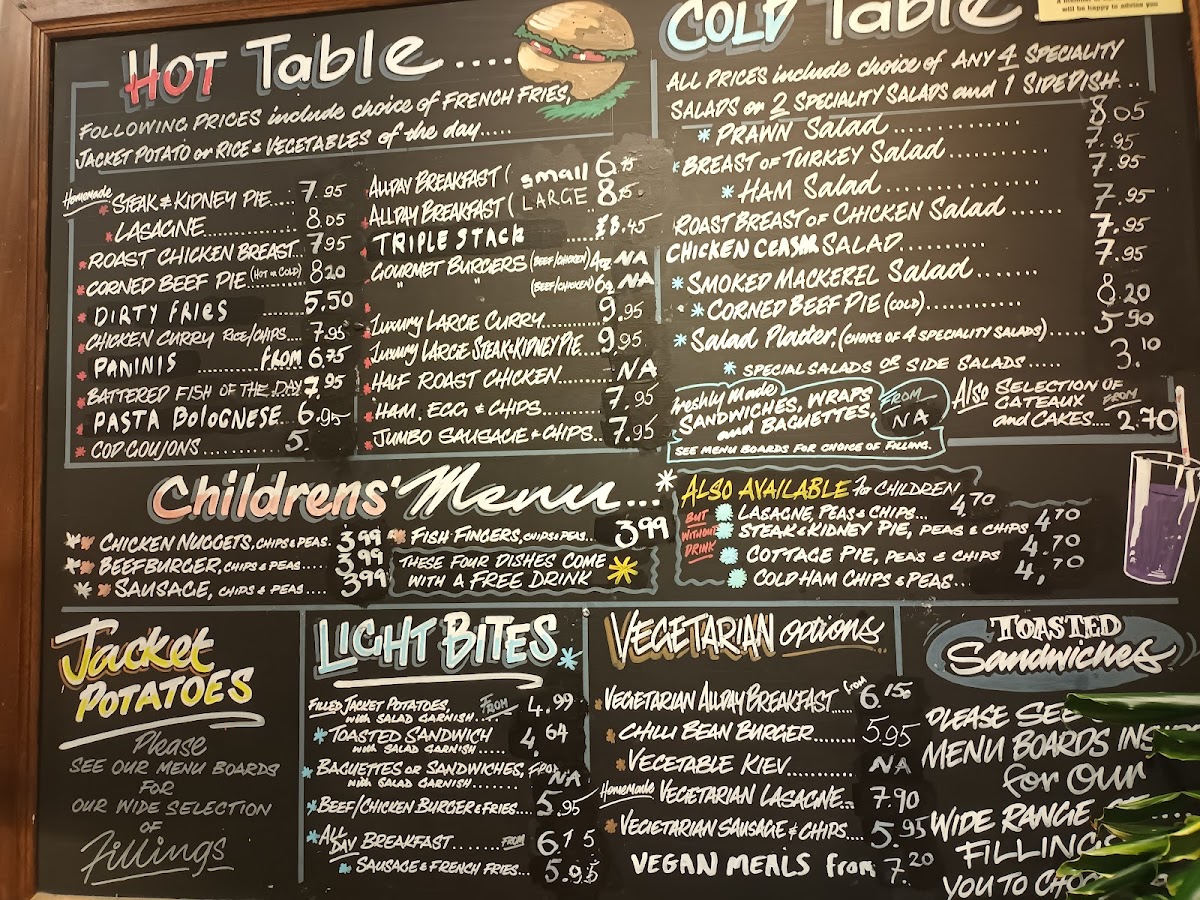 HOT Table....
FOLLOWING PRICES include choice of FRENCH FRIES,
JACKET POTATO or RICE & VEGETABLES of the day.....
Homemade STEAK & KIDNEY PIE.... 7.95
LASAGNE............ 8.05
ROAST CHICKEN BREAST... 7.95
CORNED BEEF PIE (HOT or COLD) 8.20
DIRTY FRIES ........ 5.50
CHICKEN CURRY RICE/CHIPS.... 7.95
PANINIS ........ FROM 6.75
BATTERED FISH OF THE DAY 7.95
PASTA BOLOGNESE. 6.95
COD GOUJONS .......... 5.
ALLDAY BREAKFAST ( small 6.75
ALLDAY BREAKFAST ( LARGE 8.
TRIPLE STACK ..... £8.45
GOURMET BURGERS (BEEF/CHICKEN) 4oz NA
" " (BEEF/CHICKEN) 6oz NA
Luxury LARGE CURRY....... 9.95
Luxury LARGE STEAK & KIDNEY PIE... 9.95.
HALF ROAST CHICKEN....... NA
HAM, EGG & CHIPS....... 7.95
JUMBO SAUSAGE & CHIPS.. 7.95
COLD Table.
ALL PRICES include choice of ANY 4 SPECIALITY
SALADS or 2 SPECIALITY SALADS and 1 SIDEDISH...
PRAWN Salad .............. 8.05
BREAST OF TURKEY Salad........... 7.95
HAM Salad............ 7.95
ROAST BREAST OF CHICKEN Salad ...... 7.95
CHICKEN CEASAR SALAD.......... 7.95
SMOKED MACKEREL Salad....... 7.95
CORNED BEEF PIE (COLD)........... 8.20
Salad Platter, (CHOICE OF 4 SPECIALITY SALADS)..... 5.90
SPECIAL SALADS OR SIDE SALADS..... 3.10
Freshly Made
SANDWICHES, WRAPS
and BAGUETTES,
FROM
NA
SEE MENU BOARDS FOR CHOICE OF FILLING.
Also SELECTION OF
GATEAUX FROM
and CAKES.... 2.70
will be happy to advise you
Childrens' Menu....
CHICKEN NUGGETS, CHIPS & PEAS. 3.99
BEEFBURGER, CHIPS & PEAS.... 3.99
SAUSAGE, CHIPS & PEAS.... 3.99
FISH FINGERS, CHIPS & PEAS... 3.99
THESE FOUR DISHES COME
WITH A FREE DRINK
ALSO AVAILABLE For CHILDREN
BUT WITHOUT DRINK
LASAGNE, PEAS & CHIPS... 4.70
STEAK & KIDNEY PIE, PEAS & CHIPS 4.70
COTTAGE PIE, PEAS & CHIPS 4.70
COLD HAM CHIPS & PEAS... 4.70
Jacket
POTATOES
Please
SEE OUR MENU BOARDS
FOR
OUR WIDE SELECTION
OF
Fillings
LIGHT BITES
FILLED JACKET POTATOES, FROM 4.99
with SALAD GARNISH....
TOASTED SANDWICH 4.64
with SALAD GARNISH.....
BAGUETTES OR SANDWICHES, FROM NA
with SALAD GARNISH.......
BEEF/CHICKEN BURGER & FRIES.... 5.95
ALL DAY BREAKFAST........ FROM 6.75
SAUSAGE & FRENCH FRIES... 5.95
VEGETARIAN options
VEGETARIAN ALLDAY BREAKFAST..... from 6.
CHILLI BEAN BURGER........ 5.95
VEGETABLE KIEV............ NA
Homemade VEGETARIAN LASAGNE... 7.90
VEGETARIAN SAUSAGE & CHIPS.... 5.95
VEGAN MEALS from 7.20
TOASTED
Sandwiches
PLEASE SEE
MENU BOARDS
for OUR
WIDE RANGE
FILLINGS
YOU TO